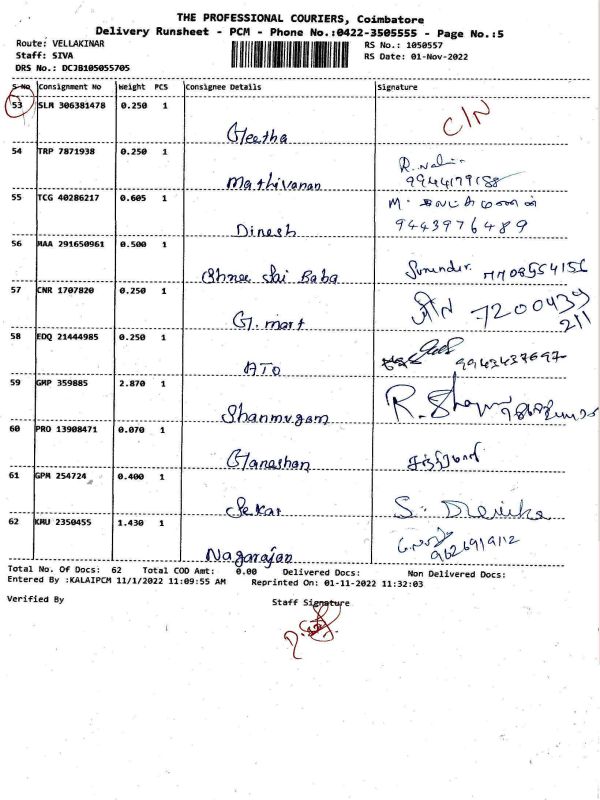 THE PROFESSIONAL COURIERS, Coimbatore
Delivery Runsheet - PCM - Phone No.:0422-3505555 - Page No.:5
Route: VELLAKINAR
RS No.: 1050557
Staff: SIVA
RS Date: 01-Nov-2022
DRS No.: DCJB105055705
S No Consignment No Weight PCS Consignee Details Signature
53 SLM 306381478 0.250 1
C/N
Geetha
54 TRP 7871938 0.250 1
9944179188
Mathivanan
55 TCG 40286217 0.605 1
M.
Dinesh 9443976489
56 MAA 291650961 0.500 1
Shree Sai Baba Surender. 7708554156
57 CNR 1707820 0.250 1
7200439
G. mart 211
58 EDQ 21444985 0.250 1
ATO 9943437697
59 GMP 359885 2.870 1
Shanmugam R.
60 PRO 13908471 0.070 1
Ganeshan
61 GPM 254724 0.400 1
Sekar S.
62 KMU 2350455 1.430 1
Nagarajan 9626919112
Total No. Of Docs: 62 Total COD Amt: 0.00 Delivered Docs: Non Delivered Docs:
Entered By :KALAIPCM 11/1/2022 11:09:55 AM Reprinted On: 01-11-2022 11:32:03
Verified By Staff Signature